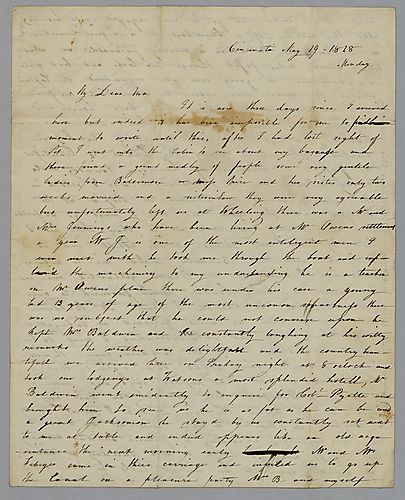 Cincinnati May 19 - 1828
Monday
My Dear
It is now three days since I arrived
here but indeed it has been impossible for me to
moment to write until this, after I had lost sight of
I went into the Cabin to see about my baggage and
there found a great medley of people some very genteel
ladies from Baltimore a Price and his sister only two
weeks married and a they were very agreeable
but unfortunately left us at Wheeling there was a Mr and
Mrs Jennings who have been living at Mr Owens settlement
a year Mr J is one of the most intelligent men I
ever met with he took me through the boat and exp
lained the machinery to my understanding he is a teacher
on Mr Owens plan there was under his care a young
lad 13 years of age of the most uncommon
was no subject that he could not converse upon he
kept Mrs Baldwin and constantly laughing at his witty
remarks the weather was delightful and the country beau
tiful we arrived here on Friday night at 8 oclock and
took our lodgings at Watsons a most splendid hotell, Mr
Baldwin went imidiently to enquire for Colo Pyatte and
brought him to see us he is as fat as he can be and
a great Jacksonian he stayed by us constantly sat next
to me at table and indeed appears like an old acqu
aintance the next morning early Mr and Mrs
came in their carriage and us to go up
the Canal on a pleasure party Mr B and myself